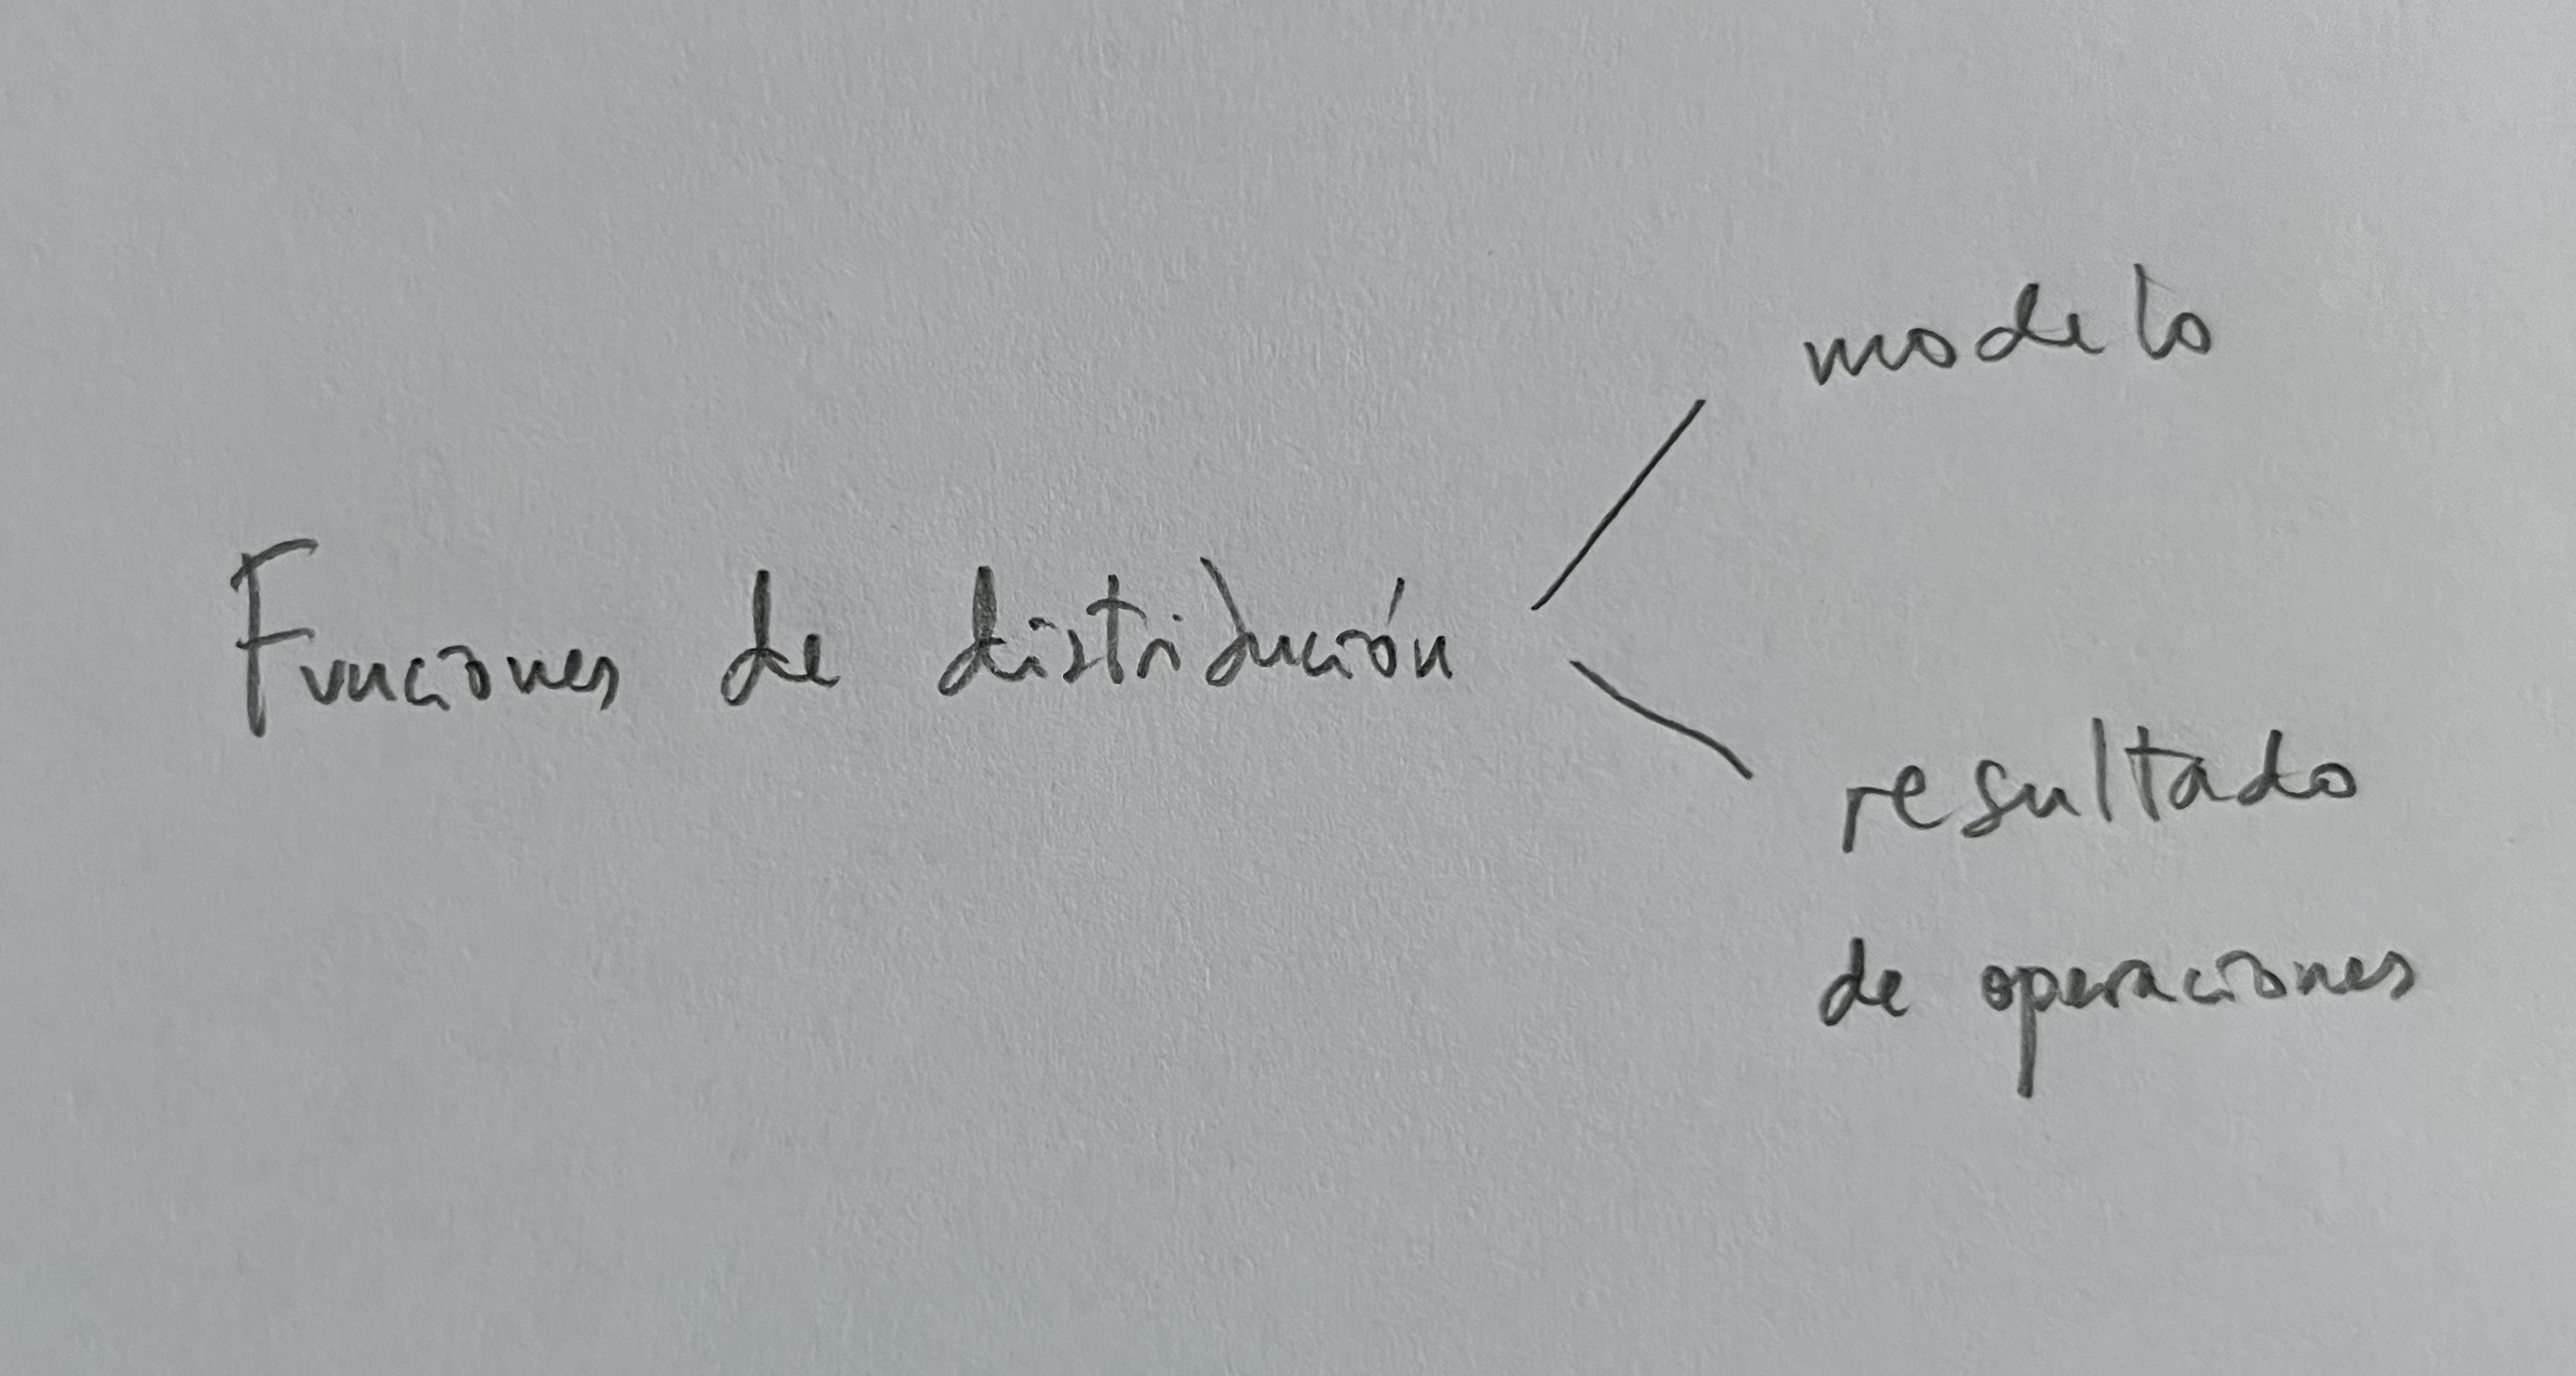 modelo
Funciones de distribución
resultado
de operaciones